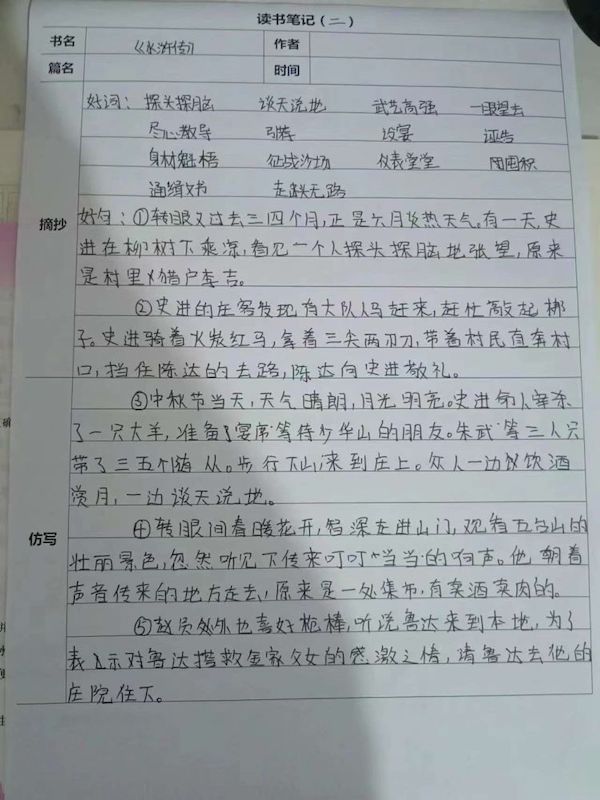 读书笔记（二）
书名 《水浒传》 作者
篇名 时间
摘抄
好词：探头探脑 谈天说地 武艺高强 一眼望去
尽心教导 引荐 设宴 诬告
身材魁梧 征战沙场 仪表堂堂 囤积
通缉文书 走投无路
好句：①转眼又过去三四个月，正是六月炎热天气。有一天，史
进在柳树下乘凉，看见一个人探头探脑地张望，原来
是村里的猎户李吉。
②史进的庄客发现有大队人马赶来，赶忙敲起梆
子。史进骑着火炭红马，拿着三尖两刃刀，带着村民直奔村
口，挡住陈达的去路，陈达向史进敬礼。
仿写
③中秋节当天，天气晴朗，月光明亮。史进命人宰杀
了一只大羊，准备了宴席等待少华山的朋友。朱武等三人只
带了三五个随从。步行下山，来到庄上。众人一边饮酒
赏月，一边谈天说地。
④转眼间春暖花开，智深走进山门，观看五台山的
壮丽景色，忽然听见下传来叮叮当当的响声。他朝着
声音传来的地方走去，原来是一处集市，有卖酒卖肉的。
⑤赵员外也喜好枪棒，听说鲁达来到本地，为了
表示对鲁达搭救金家父女的感激之情，请鲁达去他的
庄院住下。